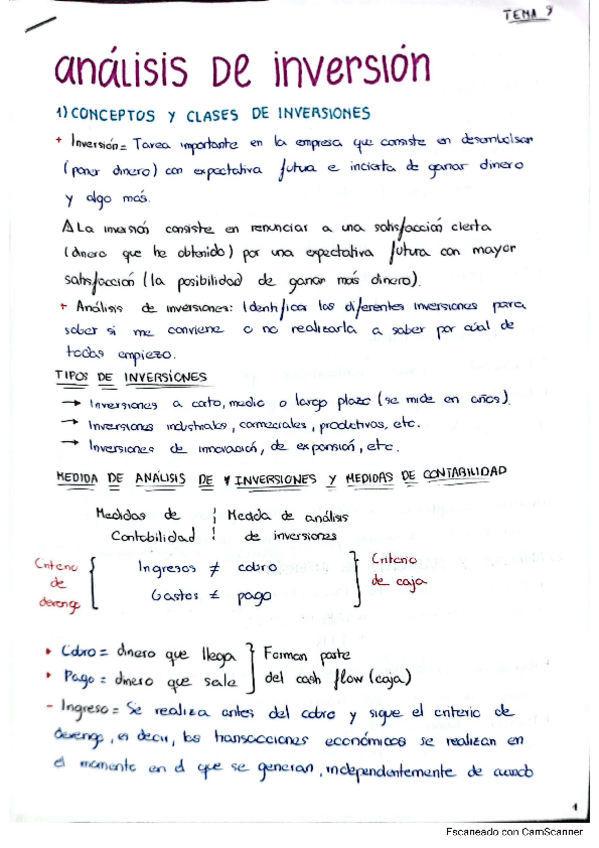 TEMA 9
análisis De inversión
1) CONCEPTOS Y CLASES DE INVERSIONES
+ Inversión = Tarea importante en la empresa que consiste en desembolsar
(poner dinero) con expectativa futura e incierta de ganar dinero
y algo más.
Δ La inversión consiste en renunciar a una satisfacción cierta
(dinero que he obtenido) por una expectativa futura con mayor
satisfacción (la posibilidad de ganar más dinero).
+ Análisis de inversiones: Identificar las diferentes inversiones para
saber si me conviene o no realizarla a saber por cúal de
todas empiezo.
TIPOS DE INVERSIONES
→ Inversiones a corto, medio o largo plazo (se mide en años).
→ Inversiones industriales, comerciales, productivas, etc.
→ Inversiones de innovación, de expansión, etc.
MEDIDA DE ANÁLISIS DE INVERSIONES Y MEDIDAS DE CONTABILIDAD
Medidas de Contabilidad | Medida de análisis de inversiones
Criterio de devengo { Ingresos ≠ cobro } Criterio de caja
Gastos ≠ pago
• Cobro = dinero que llega } Forman parte
• Pago = dinero que sale } del cash flow (caja)
- Ingreso = Se realiza antes del cobro y sigue el criterio de
devengo, es decir, las transacciones económicas se realizan en
el momento en el que se generan, independientemente de cuando
1
Escaneado con CamScanner